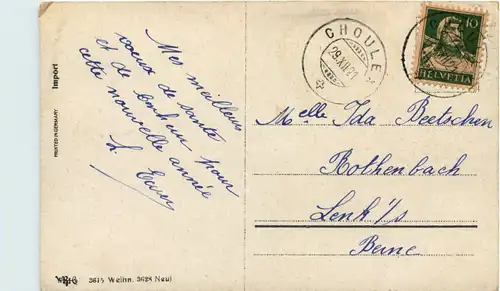 Mes meilleurs
voeux de santé
et de bonheur pour
cette nouvelle année
Import
PRINTED IN GERMANY
3615 Weihn. 3628 Neuj
CHOULEX
29.XII.21
10
HELVETIA
Melle Ida Beetschen
Rothenbach
Lenk i/s
Berne